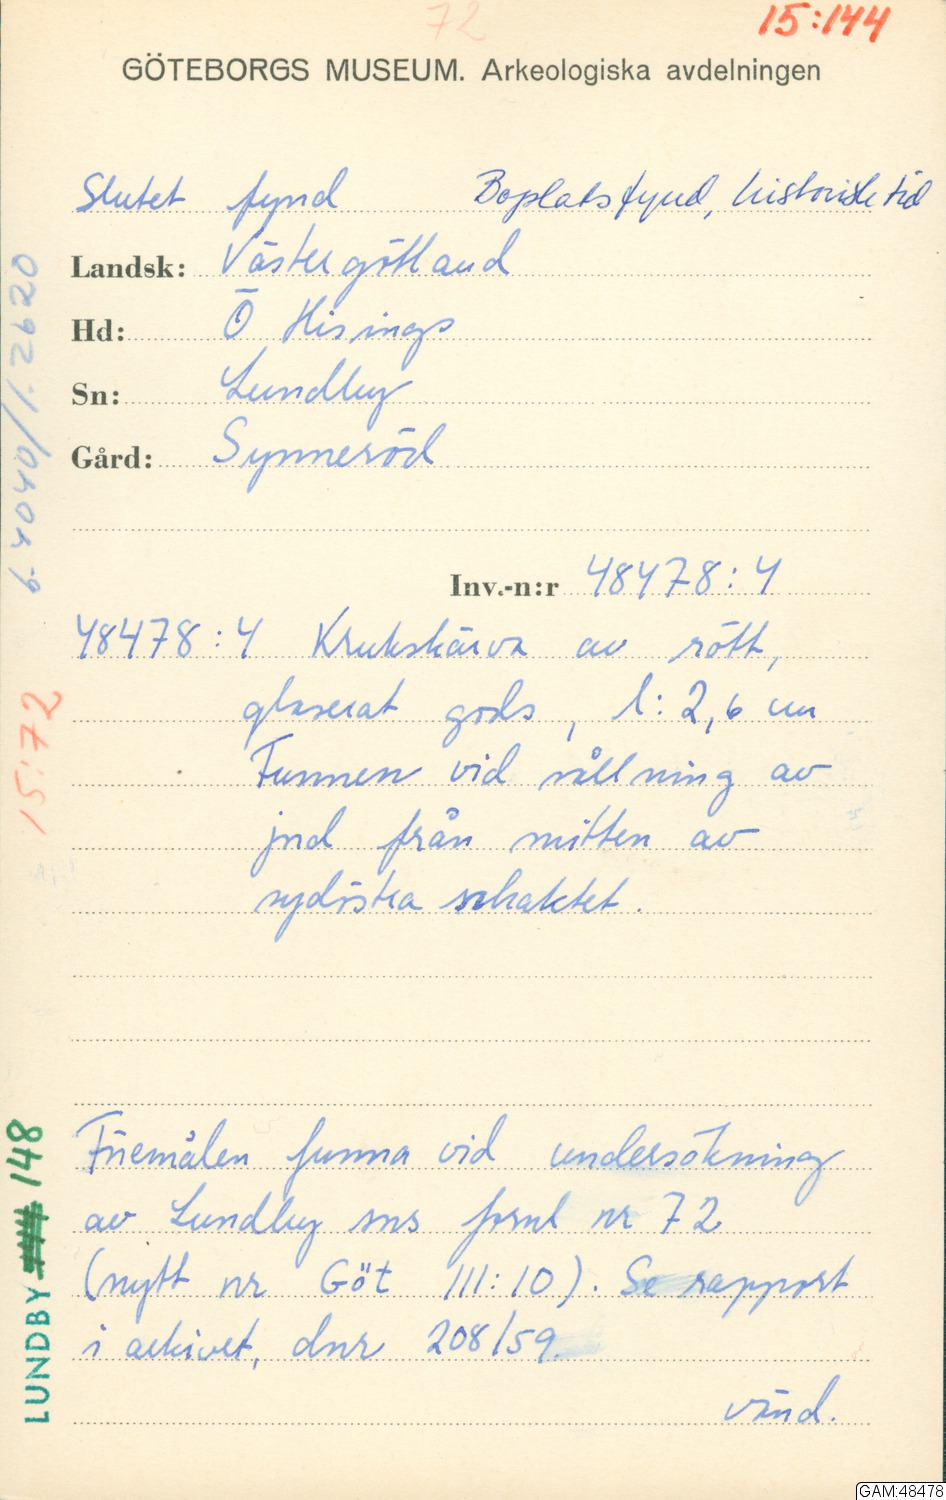 72
15:144
GÖTEBORGS MUSEUM. Arkeologiska avdelningen
Slutet fynd Boplatsfynd, historisk tid
Landsk: Västergötland
Hd: Ö Hisings
Sn: Lundby
Gård: Synneröd
Inv.-n:r 48478:4
48478:4 Krukskärva av rött,
glaserat gods, l: 2,6 cm
Funnen vid sållning av
jord från mitten av
sydöstra schaktet.
Föremålen funna vid undersökning
av Lundby sns fornl nr 72
(nytt nr Göt 111:10). Se rapport
i arkivet, dnr 208/59.
vänd.
6-4040/1.2620
15:72
LUNDBY 148
GAM:48478